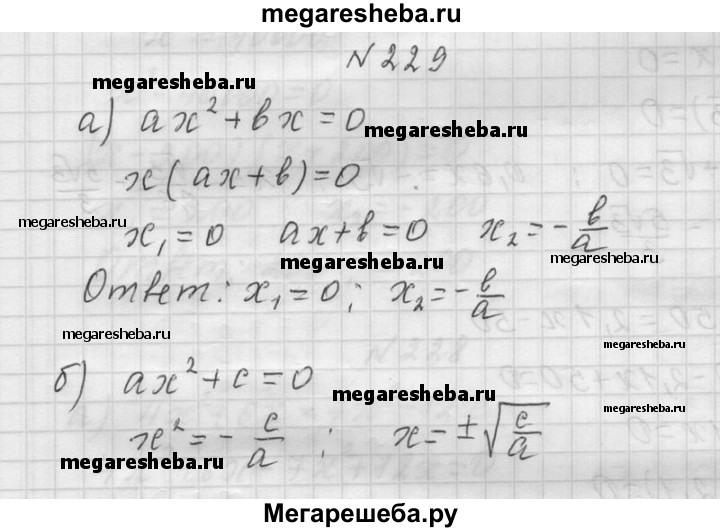 megaresheba.ru
N 229
megaresheba.ru
а) ax² + bx = 0
megaresheba.ru
x(ax+b)=0
megaresheba.ru
x₁ = 0 ax+b=0 x₂ = -b/a
megaresheba.ru megaresheba.ru
Ответ: x₁=0; x₂=-b/a
megaresheba.ru
б) ax² + c = 0
megaresheba.ru megaresheba.ru
x² = - c/a ; x = ±√(c/a)
megaresheba.ru megaresheba.ru
Мегарешеба.ру